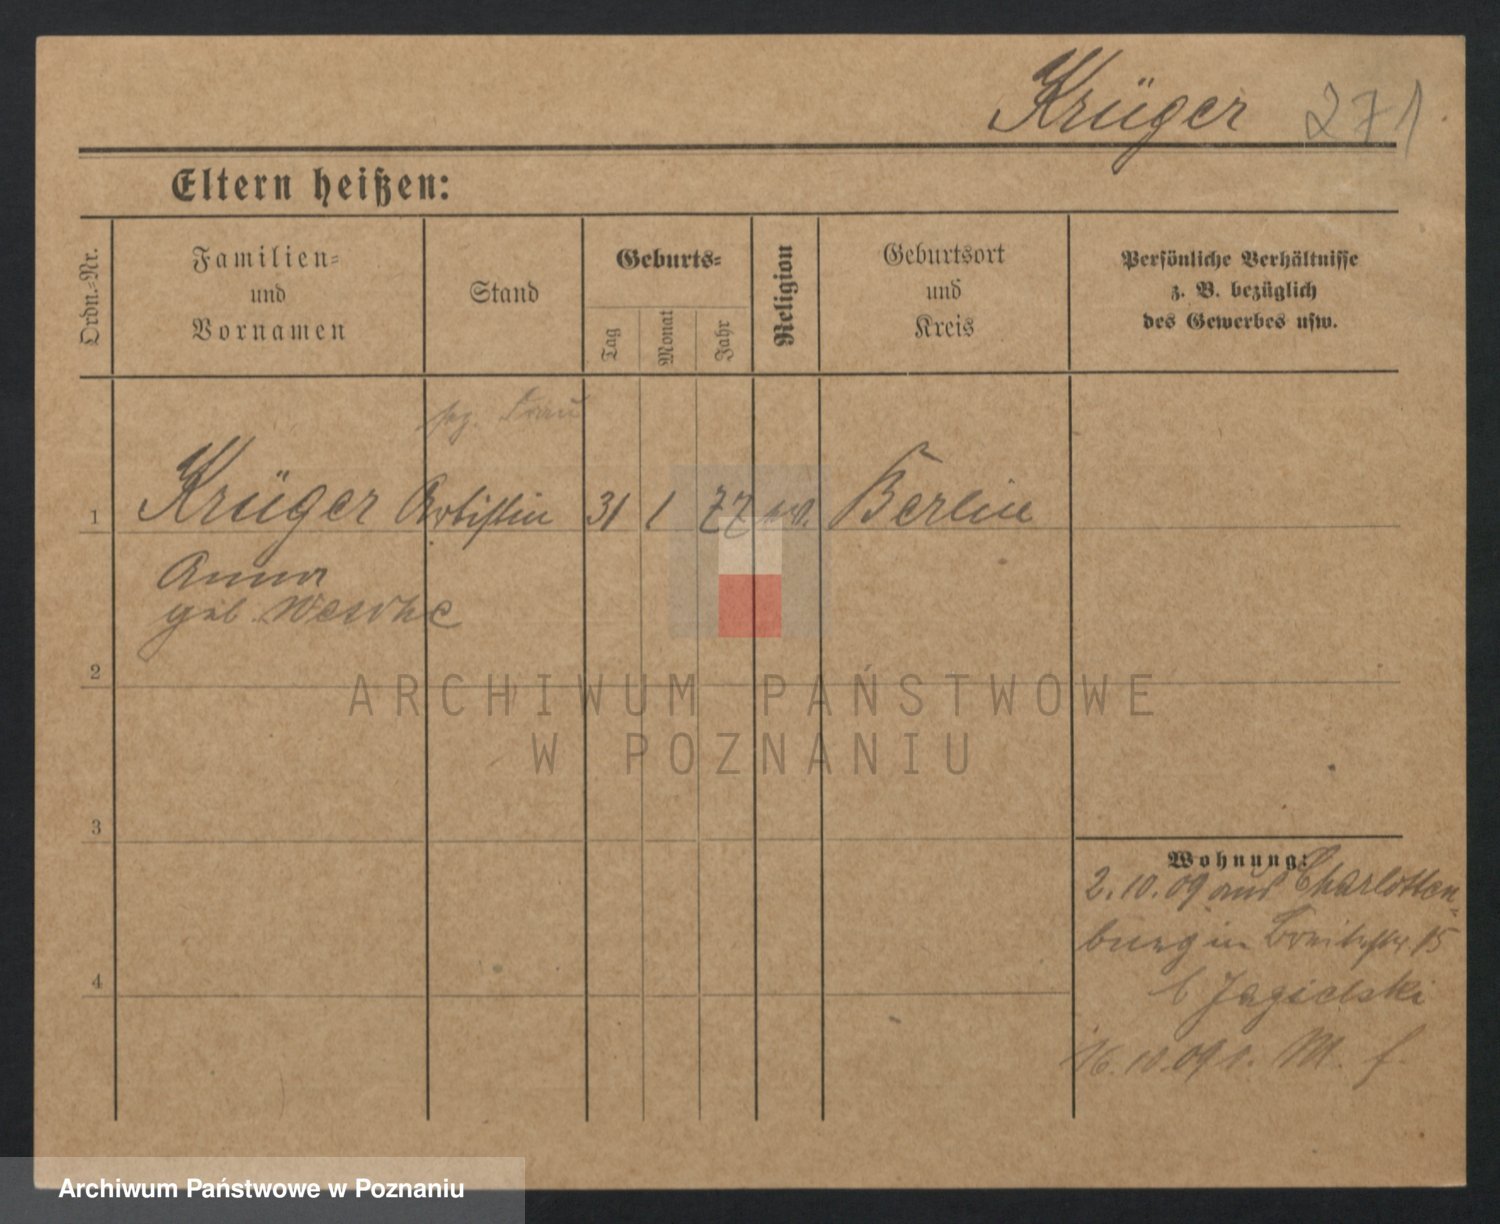 Krüger 271
Eltern heißen:
Ordn.-Nr.
Familien-
und
Vornamen
Stand
Geburts-
Tag
Monat
Jahr
Religion
Geburtsort
und
Kreis
Persönliche Verhältnisse
z. B. bezüglich
des Gewerbes usw.
Frau
1 Krüger Artistin 31 1 77 ev. Berlin
Anna
geb.
2
3
4
Wohnung:
2.10.09 aus Charlotten-
burg in Breitestr. 15
b Jagielski
16.10.09 M.
ARCHIWUM PAŃSTWOWE
W POZNANIU
Archiwum Państwowe w Poznaniu